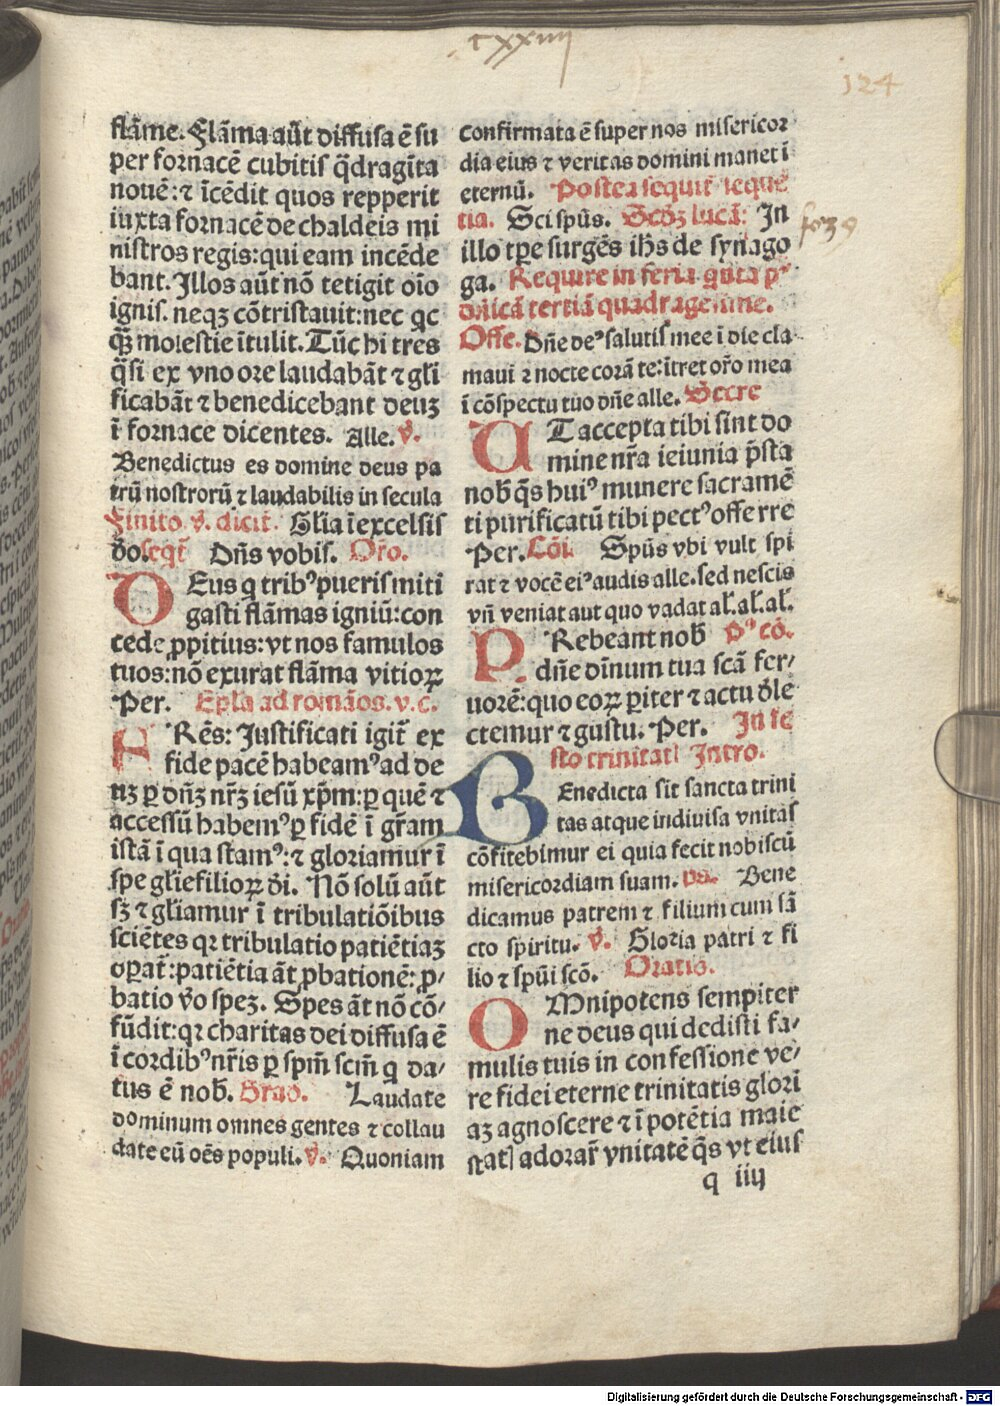 cxxiiij
124
flāme. Flāma aūt diffusa ē su
per fornacē cubitis q̄dragīta
nouē: ⁊ īcēdit quos repperit
iuxta fornacē de chaldeis mi
nistros regis: qui eam incēde
bant. Illos aūt nō tetigit oīo
ignis. neqꝫ cōtristauit: nec qc
qꝫ molestie ītulit. Tūc hi tres
q̄si ex vno ore laudabāt ⁊ gl̄i
ficabāt ⁊ benedicebant deuꝫ
ī fornace dicentes. Alle. v̄.
Benedictus es domine deus pa
trū nostrorū ⁊ laudabilis in secula
Finito v̄. dicit̄. Gl̄ia ī excelsis
ð̄o. seqt̄ Dn̄s vobis. Or̄o.
DEus q trib⁹ pueris miti
gasti flāmas igniū: con
cede ꝓpitius: vt nos famulos
tuos: nō exurat flāma vitioꝝ
Per. Ep̄la ad romāos. v. c.
FRēs: Justificati igit̄ ex
fide pacē habeam⁹ ad de
uꝫ ꝑ dn̄ꝫ nr̄ꝫ iesū xp̄m: ꝑ quē ⁊
accessū habem⁹ ꝑ fidē ī gr̄am
istā ī qua stam⁹: ⁊ gloriamur ī
spe gl̄ie filioꝝ ð̄i. Nō solū aūt
sꝫ ⁊ gl̄iamur ī tribulatiōibus
sciētes qꝛ tribulatio patiētiaꝫ
oꝑat̄: patiētia āt ꝓbationē: ꝓ-
batio v̄o speꝫ. Spes āt nō cō-
fūdit: qꝛ charitas dei diffusa ē
ī cordib⁹ nr̄is ꝑ spm̄ scm̄ q da-
tus ē nob̄. Grad. Laudate
dominum omnes gentes ⁊ collau
date eū oēs populi. v̄. Quoniam
confirmata ē super nos misericor
dia eius ⁊ veritas domini manet ī
eternū. Postea sequit̄ seque
tia. Sci spūs. Scd̄ꝫ lucā: In
illo tp̄e surgēs ih̄s de synago
ga. Require in feria qnta p⁹
dn̄icā tertiā quadragesime.
Offe. Dn̄e de⁹ salutis mee ī die cla
maui ⁊ nocte corā te: ītret or̄o mea
ī cōspectu tuo dn̄e alle. Secre
UT accepta tibi sint do
mine nr̄a ieiunia p̄sta
nob̄ q̄s hui⁹ munere sacramē
ti purificatū tibi pect⁹ offerre
Per. Cōi. Spūs vbi vult spi
rat ⁊ vocē ei⁹ audis alle. sed nescis
vn̄ veniat aut quo vadat al̄. al̄. al̄.
PRebeant nob̄ P⁹ cō.
dn̄e dīnum tua scā fer-
uorē: quo eoꝝ ꝑiter ⁊ actu ð̄le
ctemur ⁊ gustu. Per. In fe
sto trinitatl Intro.
BEnedicta sit sancta trini
tas atque indiuisa vnitas
cōfitebimur ei quia fecit nobiscū
misericordiam suam. ps. Bene
dicamus patrem ⁊ filium cum sā
cto spiritu. v̄. Gloria patri ⁊ fi
lio ⁊ spūi scō. Oratio.
OMnipotens sempiter
ne deus qui dedisti fa-
mulis tuis in confessione ve-
re fidei eterne trinitatis glori
aꝫ agnoscere ⁊ ī potētia maie
statl adorar̄ vnitatē q̄s vt eius
q iiij
Digitalisierung gefördert durch die Deutsche Forschungsgemeinschaft - DFG